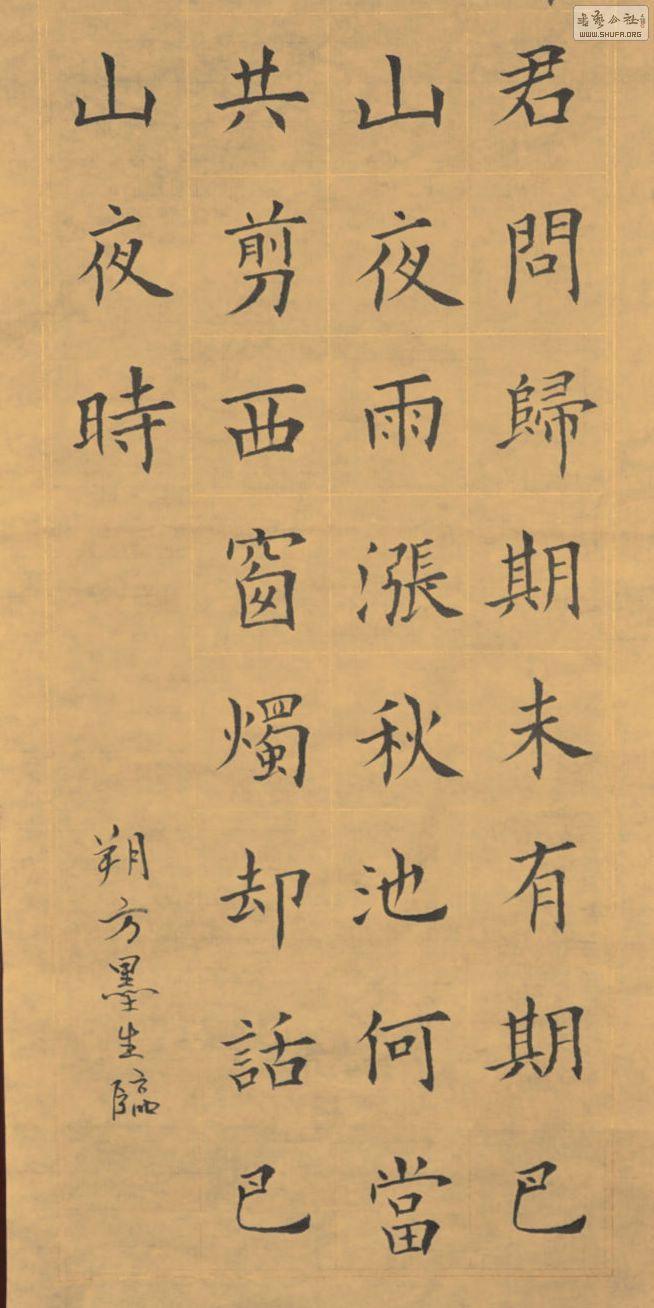 君問歸期未有期巴
山夜雨漲秋池何當
共剪西窗燭却話巴
山夜時
朔方墨生臨
書藝公社
WWW.SHUFA.ORG